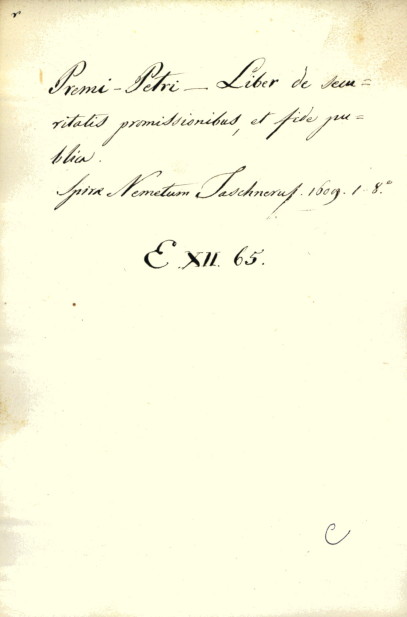 Premi - Petri — Liber de secu=
ritatis promissionibus, et fide pu=
blica.
Spiræ Nemetum Taschnerus. 1609. 1. 8.º
E XII. 65.
C